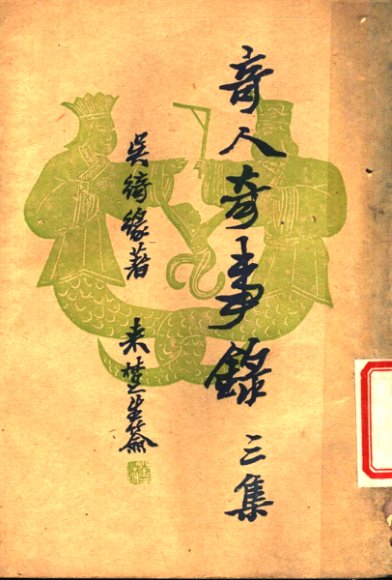 奇人奇事錄 三集
吳綺緣著
来楚生